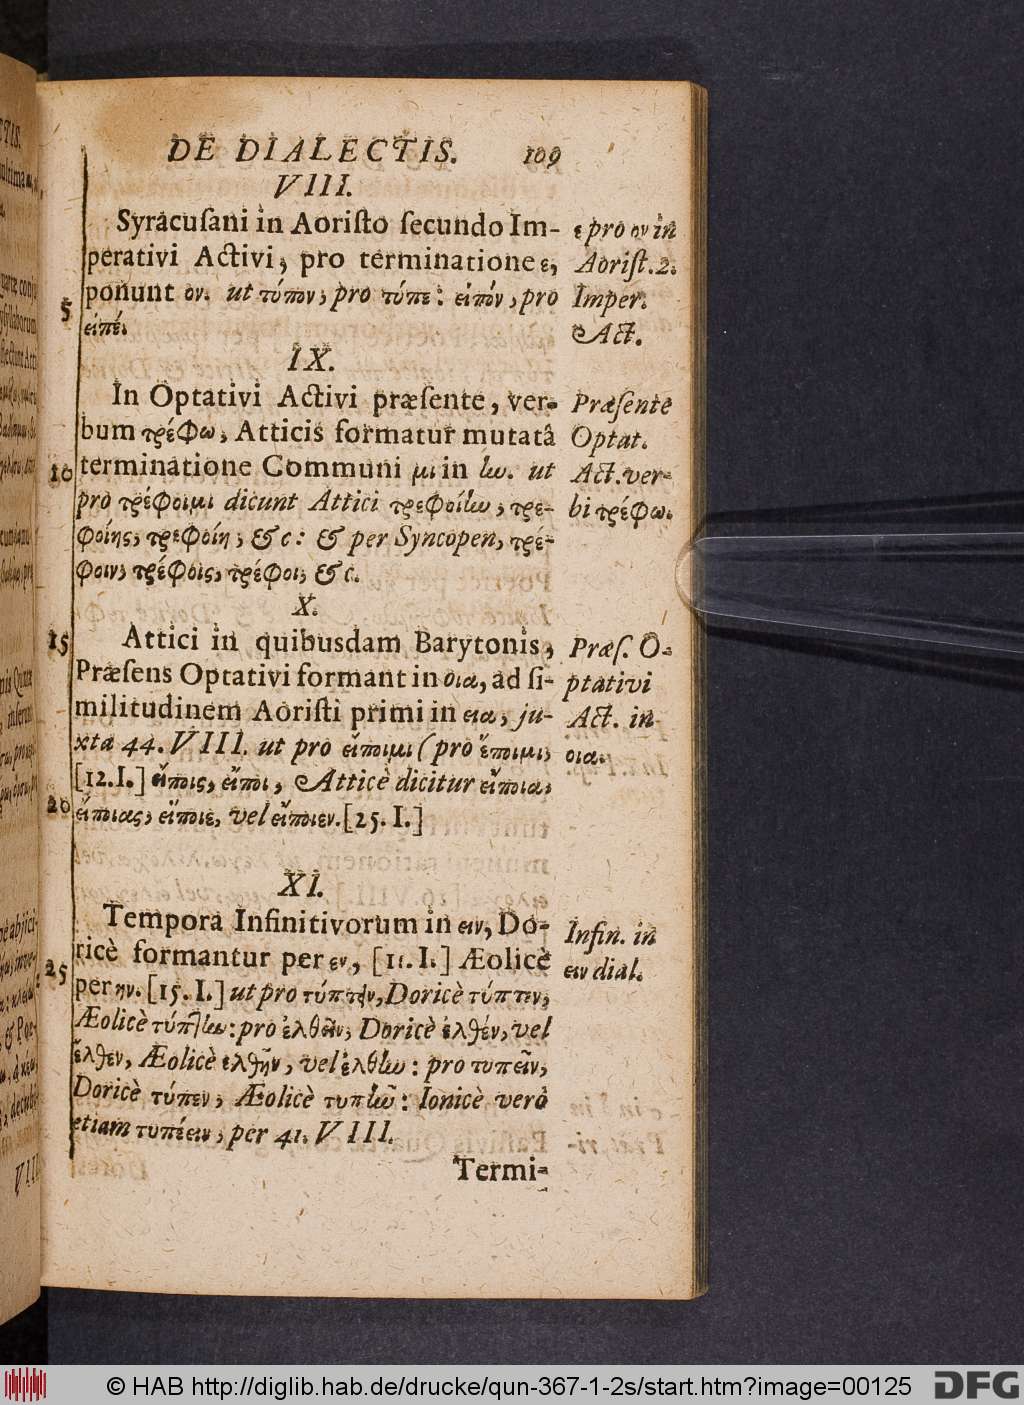 DE DIALECTIS. 109
VIII.
Syracuſani in Aoriſto ſecundo Im-
perativi Activi, pro terminatione ε,
ponunt ον. ut τύπον, pro τύπε: εἰπόν, pro
εἰπέ.
ε pro ον in
Aoriſt. 2.
Imper.
Act.
5
IX.
In Optativi Activi præſente, ver-
bum τρέφω, Atticis formatur mutatâ
terminatione Communi μι in ην. ut
pro τρέφοιμι dicunt Attici τρεφοίην, τρε-
φοίης, τρεφοίη, & c: & per Syncopen, τρέ-
φοιν, τρέφοις, τρέφοι, & c.
Præſente
Optat.
Act. ver-
bi τρέφω.
10
X.
Attici in quibusdam Barytonis,
Præſens Optativi formant in οια, ad ſi-
militudinem Aoriſti primi in εια, ju-
xta 44. VIII. ut pro εἴποιμι (pro ἔποιμι,
[12. I.] εἴποις, εἴποι, Atticè dicitur εἴποια,
εἴποιας, εἴποιε, vel εἴποιεν. [25. I.]
Præſ. O-
ptativi
Act. in
οια.
15
20
XI.
Tempora Infinitivorum in ειν, Do-
ricè formantur per εν, [11. I.] Æolicè
per ην. [15. I.] ut pro τύπτειν, Doricè τύπτεν,
Æolicè τύπτην: pro ἐλθεῖν, Doricè ἐλθέν, vel
ἔλθεν, Æolicè ἐλθῆν, vel ἐλθην: pro τυπεῖν,
Doricè τύπεν, Æolicè τυπῆν: Ionicè verò
etiam τυπέειν, per 41. VIII.
Infin. in
ειν dial.
25
Termi-
© HAB http://diglib.hab.de/drucke/qun-367-1-2s/start.htm?image=00125
DFG